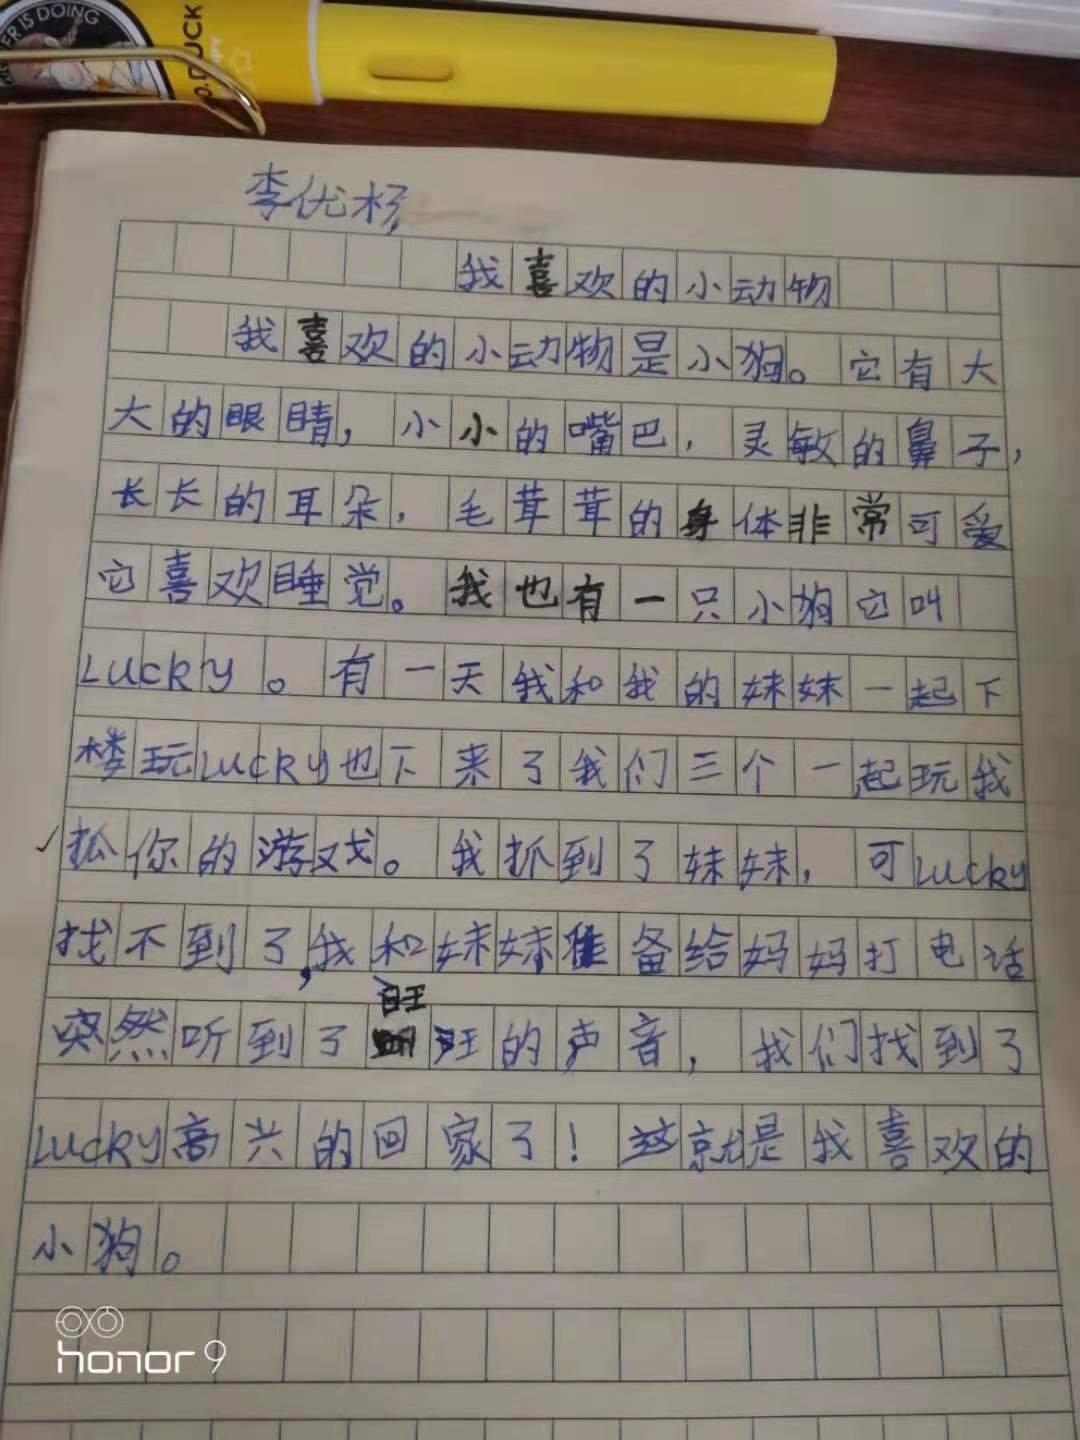 ER IS DOING
O.DUCK
李优杨
我喜欢的小动物
我喜欢的小动物是小狗。它有大
大的眼睛，小小的嘴巴，灵敏的鼻子，
长长的耳朵，毛茸茸的身体非常可爱
它喜欢睡觉。我也有一只小狗它叫
Lucky。有一天我和我的妹妹一起下
楼玩Lucky也下来了我们三个一起玩我
抓你的游戏。我抓到了妹妹，可Lucky
找不到了，我和妹妹准备给妈妈打电话
突然听到了旺旺的声音，我们找到了
Lucky高兴的回家了！这就是我喜欢的
小狗。
honor 9